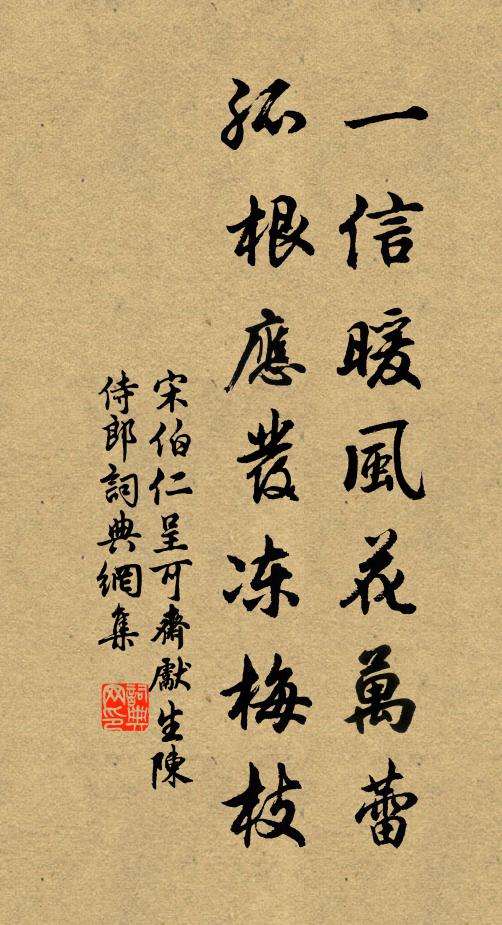 一信暖風花萬蕾
孤根應發冻梅枝
宋伯仁呈可齋獻生陳
侍郎詞典網集
詞典
网印